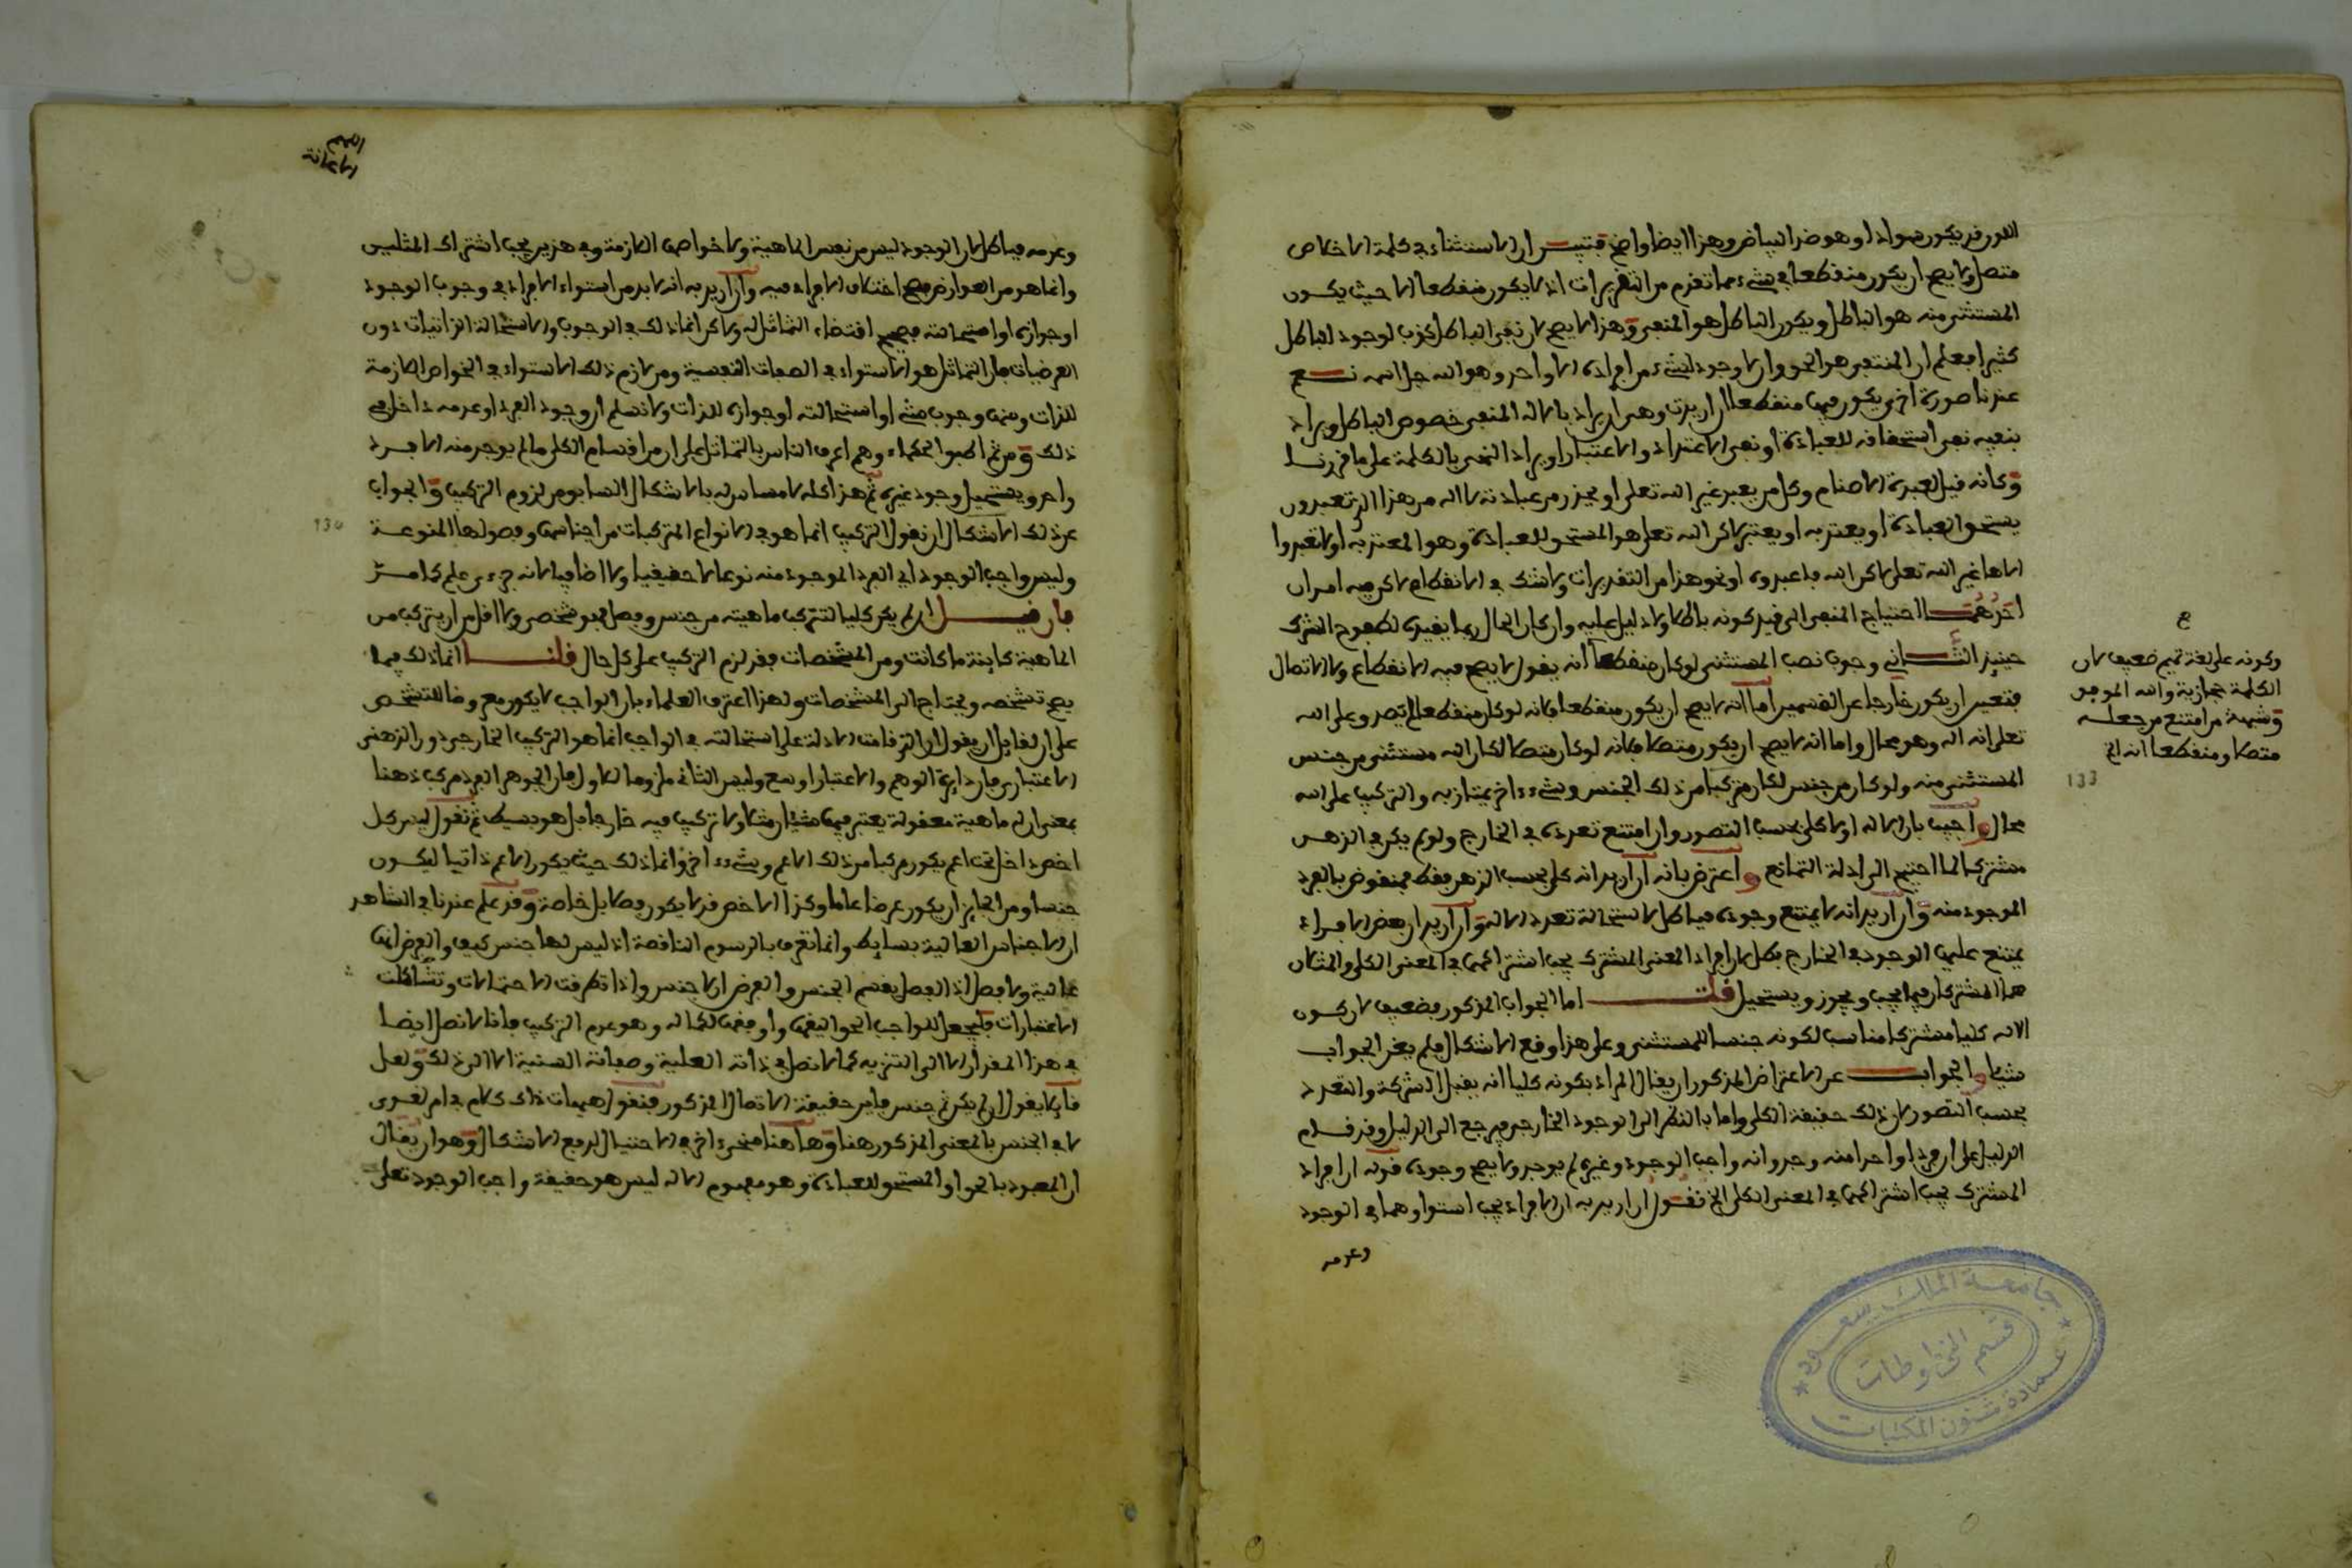 اللون قد يكون سوادا وهو ضد البياض وهذا ايضا واضح فتبين ان الاستثناء في كلمة الاخلاص
متصل ولا يصح ان يكون منقطعا في شيء مما تقدم من التقريرات اذ لا يكون منقطعا الا حيث يكون
المستثنى منه هو الباطل ويكون الباطل هو المنفي وهذا لا يصح لان نفي الباطل كذب لوجود الباطل
كثيرا فعلم ان المنتفي هو الحق وان لا وجود لشيء من افراده الا واحد وهو الله جل اسمه نعم
عندنا صورة اخرى يكون فيها منقطعا ان اريدت وهي ان يراد بالاله المنفي خصوص الباطل ويراد
بنفيه نفي استحقاقه للعبادة او نفي الاعتداد والاعتبار او يراد النفي بالكلمة على ما قررنا
وكانه قيل لعبدة الاصنام وكل من يعبد غير الله تعلى او يحذر من عبادته لا اله من هذا الذي تعبدون
يستحق العبادة او يعتد به او يعتبر لاكن الله تعلى هو المستحق للعبادة وهو المعتد به او لا تعبدوا
الاها غير الله تعلى لاكن الله فاعبدوه او نحو هذا من التقديرات ولا شك في الانقطاع لاكن فيه امران
احدهما احتياج المنفي الى قيد كونه باطلا ولا دليل عليه وان كان الحال ربما يفيده لطموح الشرك
حينئذ الثاني وجوب نصب المستثنى لو كان منقطعا انه يقول لا يصح فيه الانقطاع ولا الاتصال
فتعين ان يكون خارجا عن القسمين اما انه لا يصح ان يكون منقطعا فانه لو كان منقطعا لم يصدق على الله
تعلى انه اله وهو محال واما انه لا يصح ان يكون متصلا فانه لو كان متصلا لكان الله مستثنى من جنس
المستثنى منه ولو كان من جنس لكان مركبا من ذلك الجنس وشيء ءاخر يمتاز به والتركيب على الله
محال واجيب بان الاله اولا كلي بحسب التصور وان امتنع تعدده في الخارج ولو لم يكن في الذهن
مشتركا لما احتيج الى ادلة التمانع واعترض بانه ان اريد انه كلي بحسب الذهن فقط فمنقوض بالفرد
الموجود منه وان اريد انه لا يمتنع وجوده فباطل لاستحالة تعدد الاله وان اريد ان بعض الافراد
يمتنع عليها الوجود في الخارج فكل الافراد المعنى المشترك يجب اشتراكها في المعنى الكلي والمثلان
هما المشتركان فيما يجب ويجوز ويستحيل قلت اما الجواب المذكور فضعيف لان كون
الاله كليا مشتركا مناسب لكونه جنسا للمستثنى وعلى هذا وقع الاشكال فلم يغن الجواب
شيئا والجواب عن الاعتراض المذكور ان يقال المراد بكونه كليا انه يقبل الشركة والتعدد
بحسب التصور لان ذلك حقيقة الكلي واما بالنظر الى الوجود الخارجي فيرجع الى الدليل وقد قام
الدليل على ان فردا واحدا منه وجد وانه واجب الوجود وغيره لم يوجد ولا يصح وجوده قوله ان افراد
المشترك يجب اشتراكها في المعنى الكلي الخ نقول ان اريد به ان الافراد يجب استواوهما في الوجود
وعدمه
ع
وكونه على لغة تميم ضعيف لان
الكلمة حجازية والله الموفق
وشبهة من امتنع من جعله
متصلا ومنقطعا انه الخ
133
جامعة الملك سعود
قسم المخطوطات
عمادة شئون المكتبات
وعدمه فباطل لان الوجود ليس من نفس الماهية ولا خواصها اللازمة وفي هذين يجب اشتراك المثلين
وانما هو من العوارض فيصح اختلاف الافراد فيه وان اريد به انه لا بد من استواء الافراد في وجوب الوجود
او جوازه او استحالته فصحيح اقتضاء التماثل له ولاكن انما ذلك في الوجوب والاستحالة الذاتيات دون
العرضيات فان التماثل هو الاستواء في الصفات النفسية ومن لازم ذلك الاستواء في الخواص اللازمة
للذات ومنها وجوب شيء او استحالته او جوازه للذات ولا نسلم ان وجود الفرد او عدمه داخل في
ذلك ومن ثم اطبق الحكماء وهم اعرف الناس بالتماثل على ان من اقسام الكلي ما لم يوجد منه الا فرد
واحد ويستحيل وجود غيره ثم هذا كله لا مساس له بالاشكال السابق من لزوم التركيب والجواب
عن ذلك الاشكال ان نقول التركيب انما هو في الانواع المتركبات من اجناسها وفصولها المنوعة
130
وليس واجب الوجود اي الفرد الموجود منه نوعا لا حقيقيا ولا اضافيا لانه جزءي علم كما مر
فان قيل ان لم يكن كليا لتتركب ماهيته من جنس وفصل فهو شخص ولا اقل من ان يتركب من
الماهية كاينة ما كانت ومن المشخصات فقد لزم التركيب على كل حال قلنا انما ذلك فيما
يصح تشخصه ويحتاج الى المشخصات ولهذا اعترف العلماء بان الواجب لا يكون معروضا للتشخص
على ان لقايل ان يقول ان الذي قامت الادلة على استحالته في الواجب انما هو التركيب الخارجي دون الذهني
الاعتباري فان دايرة الوهم والاعتبار اوسع وليس الثاني ملزوما للاول فان الجوهر الفرد مركب ذهنا
بمعنى ان له ماهية معقولة يعتبر فيها شيئان مثلا ولا تركيب فيه خارجا بل هو بسيط ثم نقول ليس كل
اخص داخل تحت اعم يكون مركبا من ذلك الاعم وشيء ءاخر وانما ذلك حيث يكون الاعم ذاتيا ليكون
جنسا ومن الجايز ان يكون عرضا عاما وكذا الاخص قد لا يكون فصلا بل خاصة وقد علم عندنا في الشاهد
ان الاجناس العالية بسايط وانما تعرف بالرسوم الناقصة اذ ليس لها جنس كيف والفرض انها
عالية ولا فصل اذ الفصل يقسم الجنس والفرض ان لا جنس واذا تطرقت الاحتمالات وتشاكلت
الاعتبارات فليجعل للواجب الحق اليقها واوفقها لكماله وهو عدم التركيب فانا لا نصل ايضا
في هذا المقدار الا الى التنزيه كما لا نصل في ذاته العلية وصفاته السنية الا الى ذلك ولعل
قايلا يقول ان لم يكن ثم جنس فاين حقيقة الاتصال المذكور فنقول هيهات ذلك كلام في امر لغوي
لا في الجنس بالمعنى المذكور هنا وهاهنا منحى ءاخر في الاحتيال لدفع الاشكال وهو ان يقال
ان المعبود بالحق او المستحق للعبادة وهو مفهوم الاله ليس هو حقيقة واجب الوجود تعلى